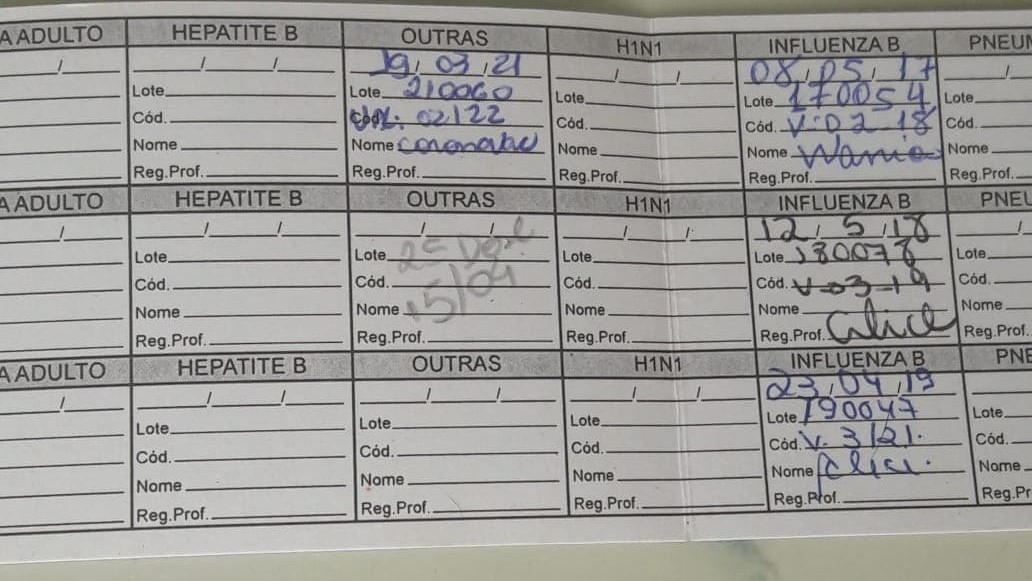 A ADULTO HEPATITE B OUTRAS H1N1 INFLUENZA B PNEUM
/ / / 19, 03, 21 / / 08, 05, 17 /
Lote Lote 210060 Lote Lote 170054 Lote
Cód. Val: 02/22 Cód. Cód. V:02-18 Cód.
Nome Nome Nome Nome Wania Nome
Reg.Prof. Reg.Prof. Reg.Prof. Reg.Prof. Reg.Prof.
A ADULTO HEPATITE B OUTRAS H1N1 INFLUENZA B PNEU
/ / / / / / / 12, 5, 18 /
Lote Lote 2ª Dose Lote Lote 180078 Lote
Cód. Cód. 15/04 Cód. Cód. V-03-19 Cód.
Nome Nome Nome Nome Nome
Reg.Prof. Reg.Prof. Reg.Prof. Reg.Prof. Alice Reg.Prof.
A ADULTO HEPATITE B OUTRAS H1N1 INFLUENZA B PNE
/ / / / / / / 23, 04, 19
Lote Lote Lote Lote 190047 Lote
Cód. Cód. Cód. Cód. V. 3/21. Cód.
Nome Nome Nome Nome Nome
Reg.Prof. Reg.Prof. Reg.Prof. Reg.Prof. Reg.Pr